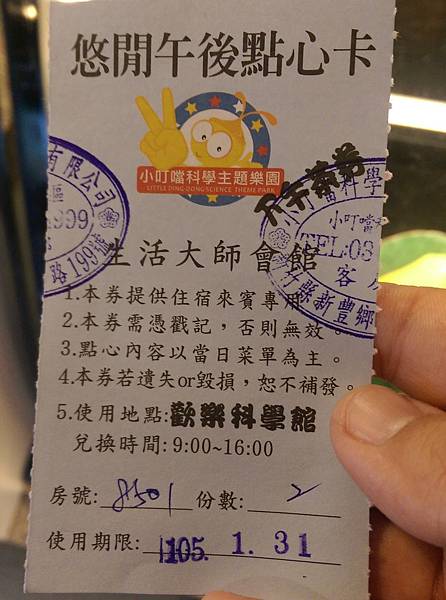 悠閒午後點心卡
小叮噹科學主題樂園
LITTLE DING-DONG SCIENCE THEME PARK
下午茶券
有限公司
999
路199號
小叮噹科學
小叮噹
TEL:03
客房
竹縣新豐鄉
生活大師會館
1.本券提供住宿來賓專用
2.本券需憑戳記，否則無效。
3.點心內容以當日菜單為主。
4.本券若遺失or毀損，恕不補發。
5.使用地點:歡樂科學館
兌換時間:9:00~16:00
房號: 8501 份數: 2
使用期限: 105. 1. 31